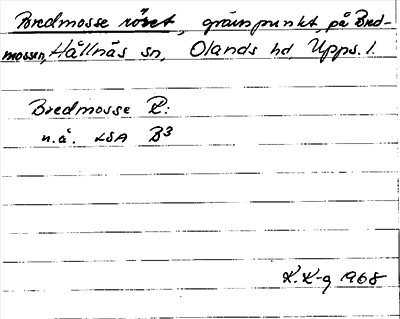 Bredmosse röset, gränspunkt på Bred-
mossen, Hållnäs sn, Olands hd, Upps. l.
Bredmosse R:
n.å. LSA B3
K. K-g 1968